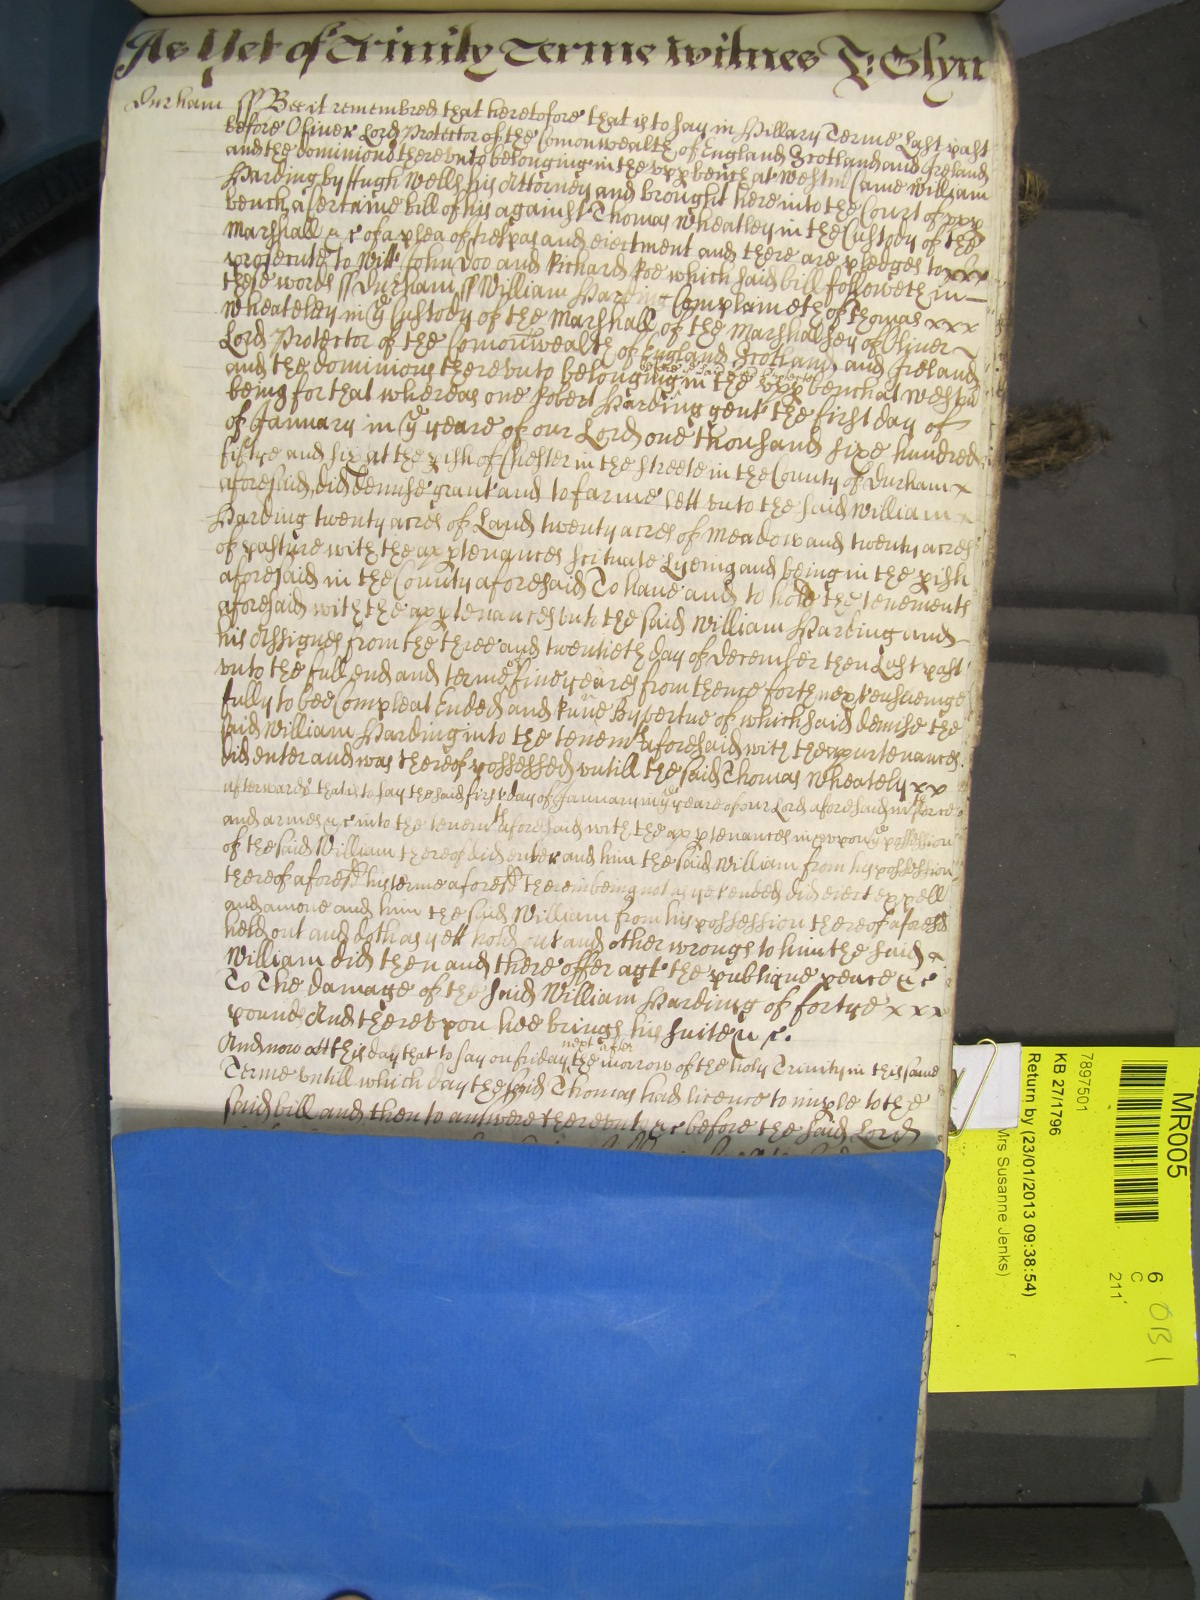 As Yet of Trinity Terme Witnes J: Glyn
Durham ss Bee it remembred that heretofore that is to say in Hillary Terme Last past
before Oliver Lord Protector of the Comonwealth of England Scotland and Ireland
and the dominions thereunto belonging in the vpp bench at Westm came William
Harding by Hugh Wells his Attorney and brought here into the Court of vpp
bench a Certaine bill of his against Thomas Wheatley in the Custody of the
Marshall &c of a plea of trespas and eiectment and there are pledges to xxx
prosecute to Witt John Doo and Richard Roe which said bill followeth in
these words ss Durham ss William Harding Complaineth of Thomas xxx
Wheateley in ye Custody of the Marshall of the Marshalsey of Oliver
Lord Protector of the Comonwealth of England Scotland and Ireland
and the dominions thereunto belonging in the vpp bench at Westm
being for that whereas one Robert Harding gent the first day of
of January in ye yeare of our Lord one thousand sixe hundred
fiftye and six at the pish of Chester in the Streete in the County of Durham x
aforesaid did demise grant and to farme lett vnto the said William x
Harding twenty acres of Land twenty acres of meadow and twenty acres
of pasture with the apptenances scituate Lyeing and being in the pish
aforesaid in the County aforesaid To have and to hold the tenements
aforesaid with the apptenances vnto the said William Harding and
his Assignes from the three and twentieth day of December then Last past
vnto the full end and terme of five yeares from thence forth next ensueinge
fully to bee Compleat Ended and runne By vertue of which said demise the
said William Harding into the tenemts aforesaid with the apurtenances
did enter and was thereof possessed vntill the said Thomas Wheately xx
afterwards that is to say the said first day of January in ye yeare of our Lord aforesaid with force
and armes &c into the tenemts aforesaid with the apptenances in vpon ye possession
of the said William thereof did enter and him the said William from his possession
thereof aforesd his terme aforesd therein being not as yet ended did eiect expell
and amove and him the said William from his possession thereof aforesd
held out and doth as yett hold out and other wrongs to him the said x
William did then and there offer agt the publique peace &c
To The damage of the said William Harding of fortye xxx
pounds And therevpon hee brings his suite &c.
And now att this day that to say on friday next after the morrow of the holy Trinity in this same
Terme vntill which day the said Thomas had licence to imple to the
said bill and then to answere therevnto &c before the said Lord
MR005
7897501
KB 27/1796
Return by (23/01/2013 09:38:54)
Mrs Susanne Jenks)
6
C
211